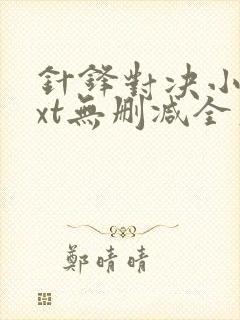 針鋒對決小
xt無刪减全
鄭晴晴